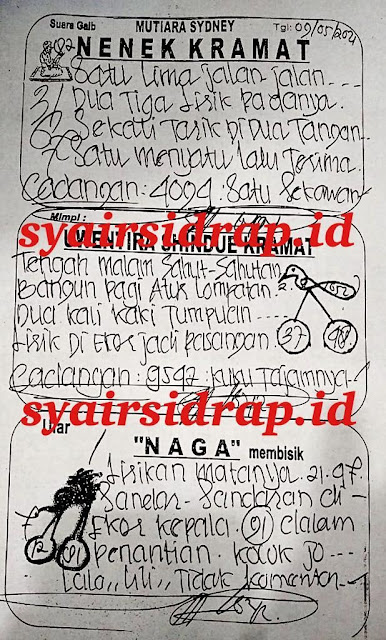 Suara Gaib MUTIARA SYDNEY Tgl: 09/05/2021
NENEK KRAMAT
Satu lima jalan jalan ----
Dua Tiga Sisik Badanya.
Sekali Tarik Di Dua Tangan.
Satu menyatu lalu Terima.
Cadangan : 4094 : Satu Sekawan
Mimpi :
syairsidrap.id
KRAMAT
Tengah malam Sahut-Sahutan
Bangun Pagi Atur Lompatan.
Dua kali kaki Tumpuan ----
Sisik Di Ekor jadi Pasangan
37
98
Cadangan : 9592 : kuku Tajamnya
syairsidrap.id
Ular
"NAGA" membisik
Sisikan matanya. 21.97.
Sandar - Sandaran di -
Ekor kepala. 91 dalam
Penantian.
Tidak
12
91